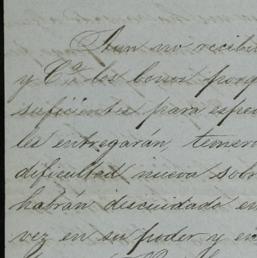 Aun no recibi
y Cª les bonos porq
suficientes para espe
les entregarán temero
dificultad nueva sobr
habrán descuidado en
vez en su poder y en